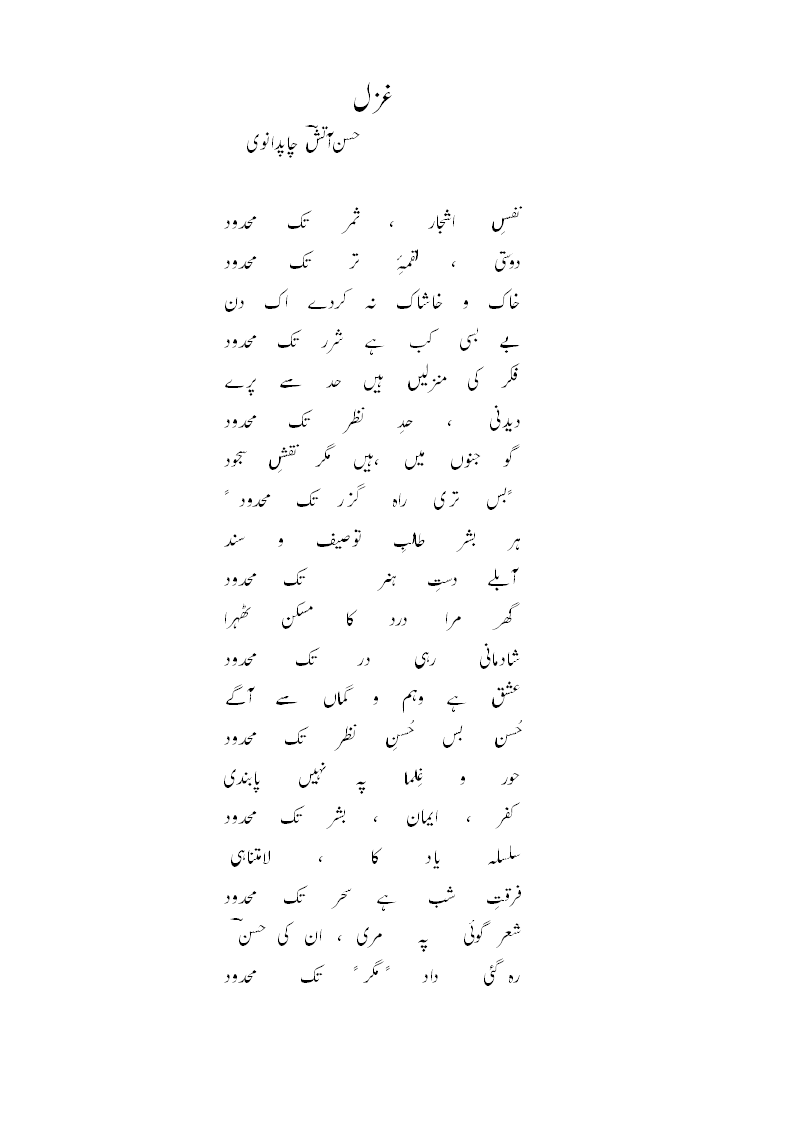 غزل
حسن آتشؔ چاپدانوی
نفسِ اشجار ، ثمر تک محدود
دوستی ، لقمۂِ تر تک محدود
خاک و خاشاک نہ کردے اک دن
بے بسی کب ہے شرر تک محدود
فکر کی منزلیں ہیں حد سے پرے
دیدنی ، حدِ نظر تک محدود
گو جنوں میں ،ہیں مگر نقشِ سجود
"بس تری راہ گزر تک محدود "
ہر بشر طالبِ توصیف و سند
آبلے دستِ ہنر تک محدود
گھر مرا درد کا مسکن ٹھہرا
شادمانی رہی در تک محدود
عشق ہے وہم و گماں سے آگے
حُسن بس حُسنِ نظر تک محدود
حور و غِلما پہ نہیں پابندی
کفر ، ایمان ، بشر تک محدود
سلسلہ یاد کا ، لامتناہی
فرقتِ شب ہے سحر تک محدود
شعر گوئی پہ مری ، ان کی حسنؔ
رہ گئی داد "مگر " تک محدود